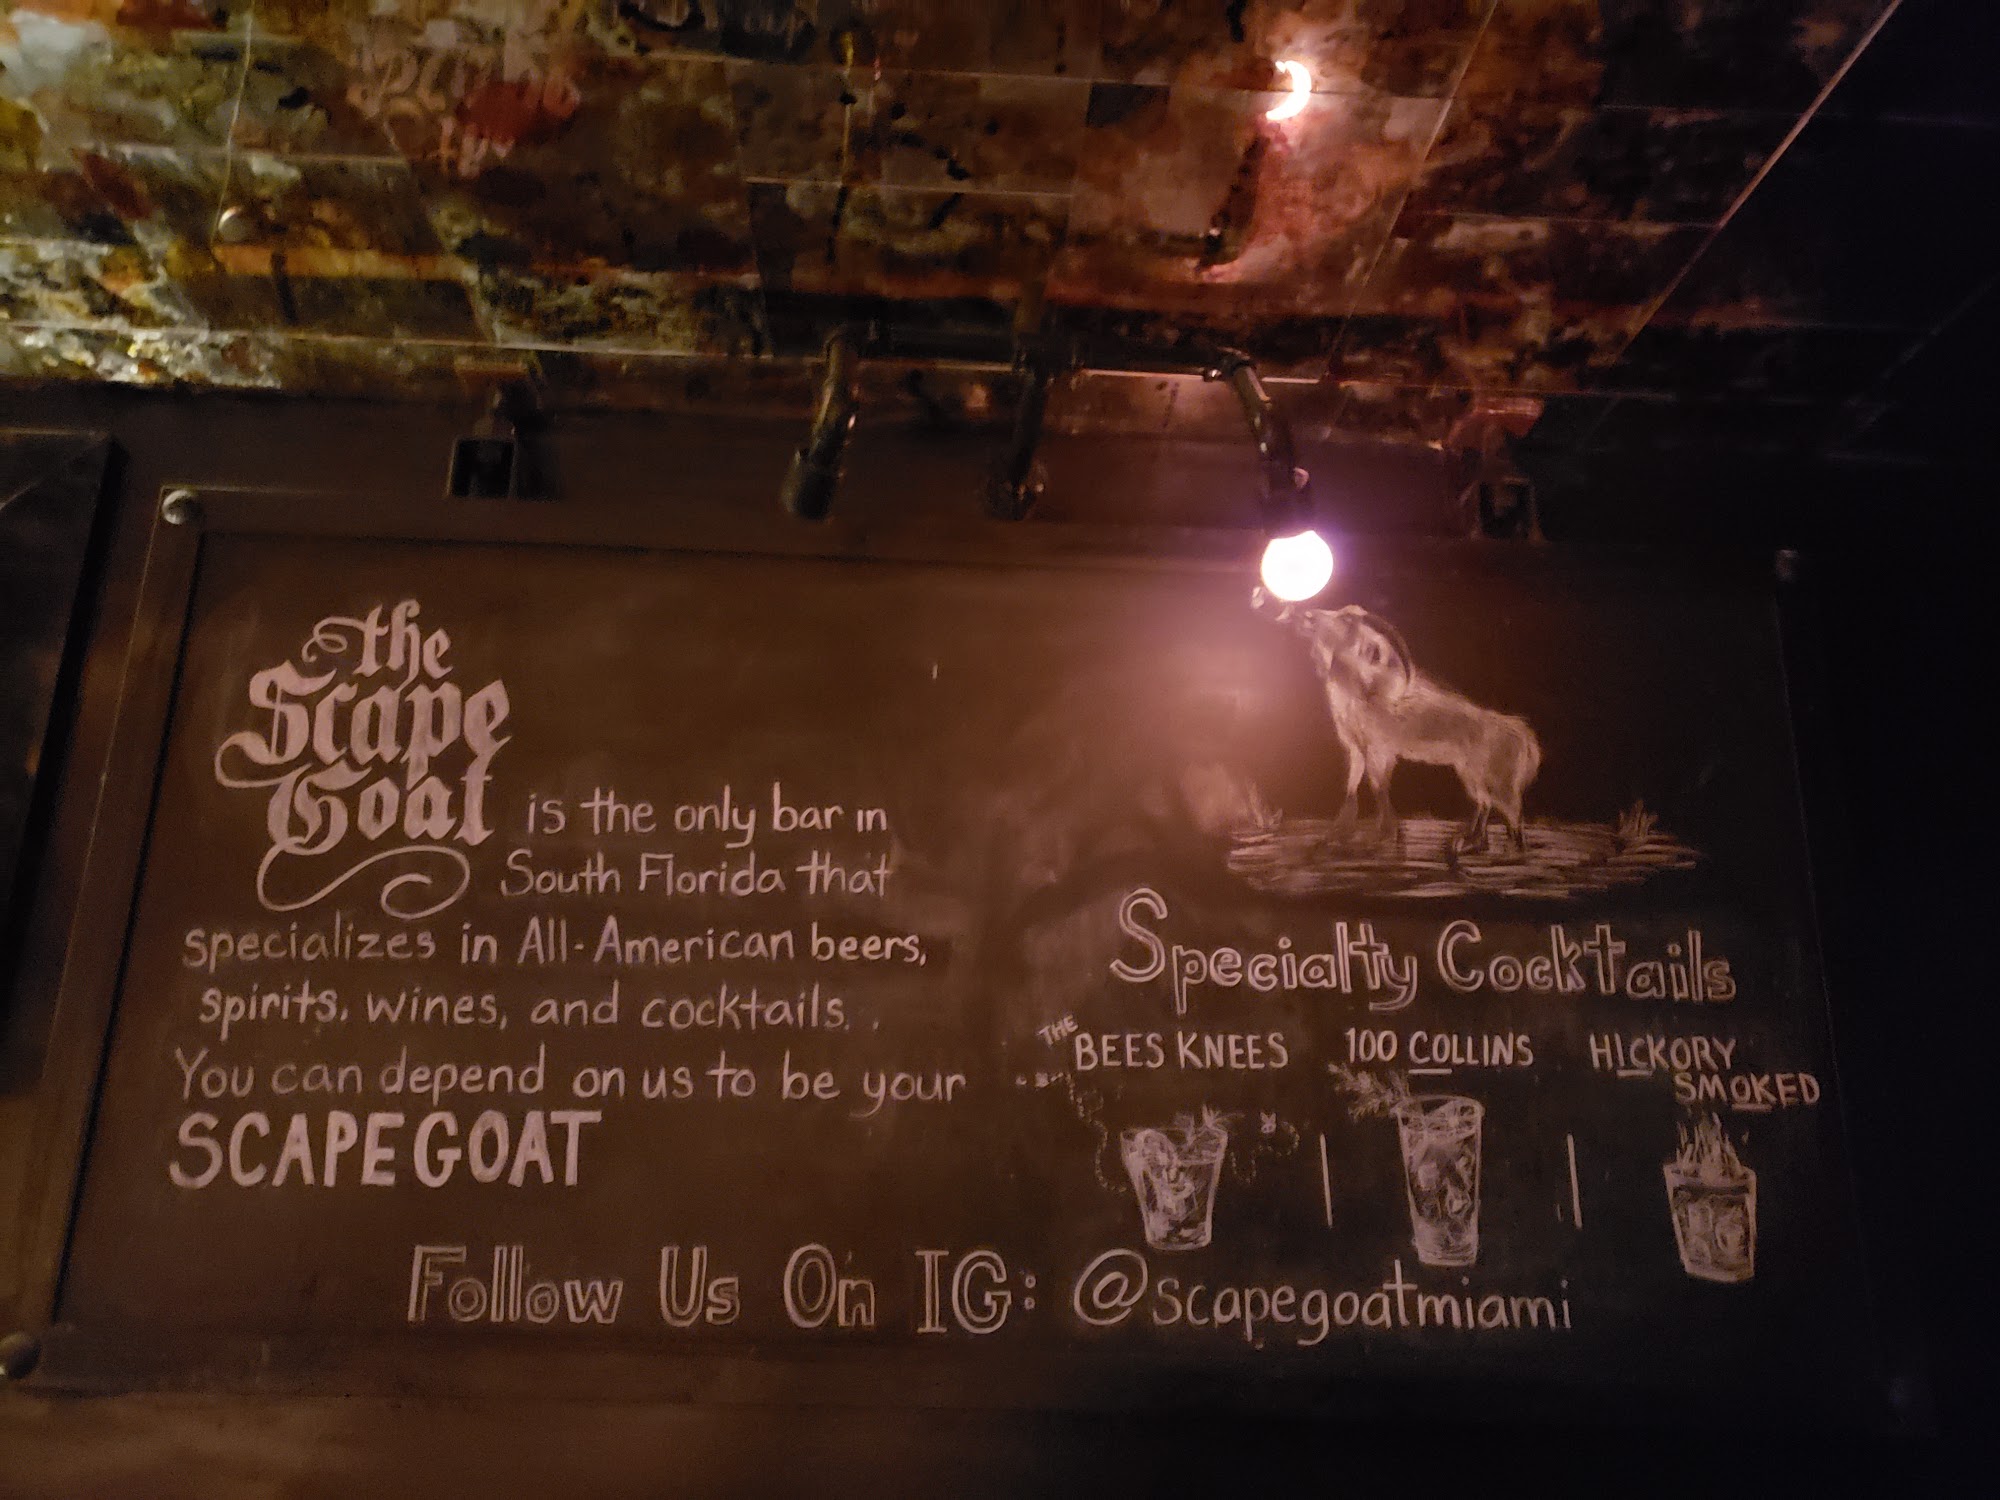 the
Scape
Goat
is the only bar in
South Florida that
specializes in All-American beers,
spirits, wines, and cocktails.
You can depend on us to be your
SCAPEGOAT
Specialty Cocktails
THE BEES KNEES
100 COLLINS
HICKORY
SMOKED
Follow Us On IG: @scapegoatmiami